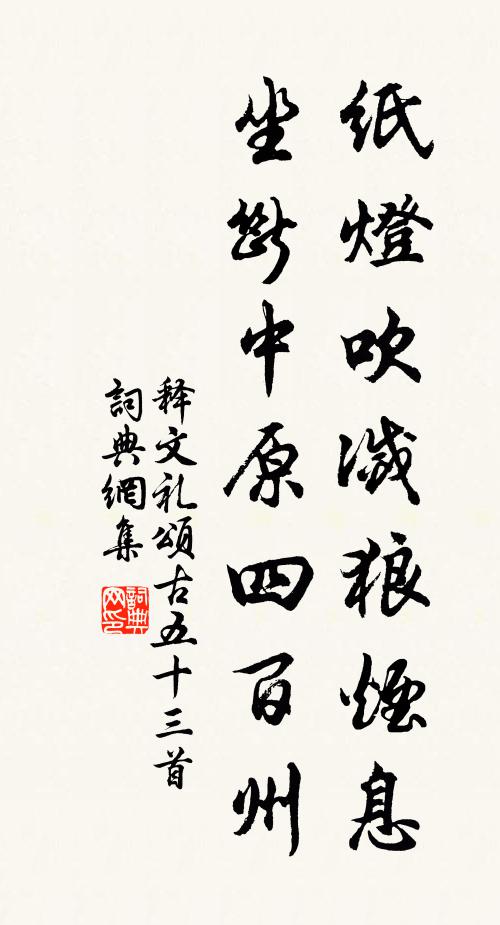 紙燈吹滅狼煙息
坐斷中原四百州
释文礼頌古五十三首
詞典網集
詞典
网印